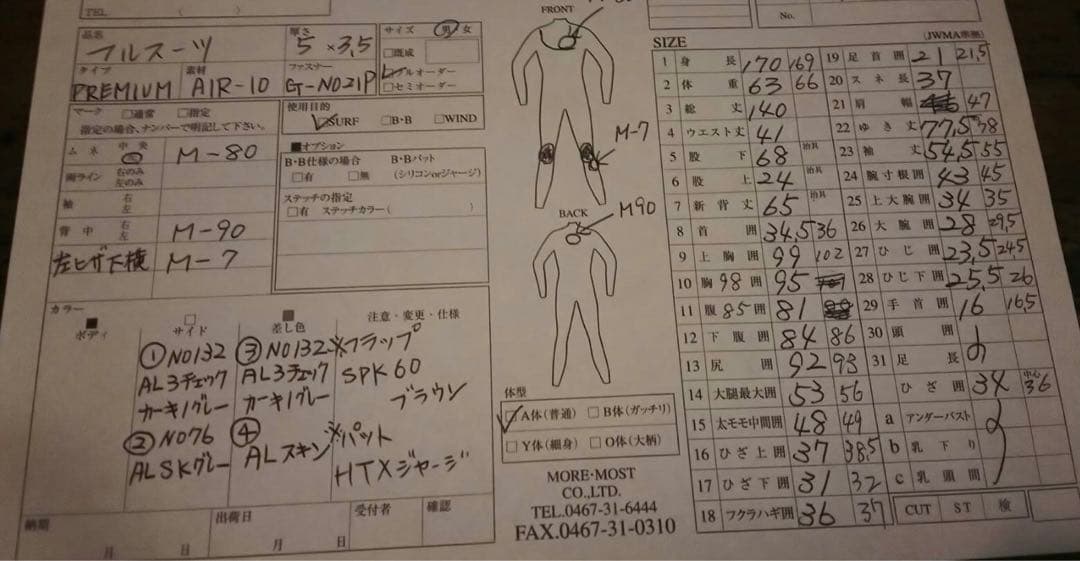 TEL ( )
No.
品名 厚さ サイズ 男 女
フルスーツ 5 × 3,5
□既成
タイプ 素材 ファスナー フルオーダー
PREMIUM AIR-10 G-NO21P □セミオーダー
マーク □通常 □指定
指定の場合、ナンバーで明記して下さい。
使用目的
SURF □B・B □WIND
ムネ 中央 M-80
両ライン 右のみ 左のみ
袖 右 左
背中 右 左 M-90
左ヒザ下横 M-7
■オプション
B・B仕様の場合 B・Bパット
□有 □無 (シリコンorジャージ)
ステッチの指定
□有 ステッチカラー( )
カラー
■ボディ □サイド ■差し色 注意・変更・仕様
①NO132 ③NO132 ※フラップ
AL3チェック AL3チェック SPK60
カーキ/グレー カーキ/グレー ブラウン
②NO76 ④ ※パット
ALSKグレー ALスキン HTXジャージ
納期 出荷日 受付者 確認
月 日 月 日
FRONT
M-7
BACK
M90
体型
□A体(普通) □B体(ガッチリ)
□Y体(細身) □O体(大柄)
MORE・MOST
CO.,LTD.
TEL.0467-31-6444
FAX.0467-31-0310
SIZE (JWMA準拠)
1 身長 170 169
2 体重 63 66
3 総丈 140
4 ウエスト丈 41
5 股下 68 治具
6 股上 24 治具
7 新背丈 65
8 首囲 34,5 36
9 上胸囲 99 102
10 胸98囲 95
11 腹85囲 81
12 下腹囲 84 86
13 尻囲 92 93
14 大腿最大囲 53 56
15 太モモ中間囲 48 49
16 ひざ上囲 37 38,5
17 ひざ下囲 31 32
18 フクラハギ囲 36 37
19 足首囲 21 21,5
20 スネ長 37
21 肩幅 47
22 ゆき丈 77,5
23 袖丈 54,5 55
24 腕寸根囲 43 45
25 上大腕囲 34 35
26 大腕囲 28 29,5
27 ひじ囲 23,5 24,5
28 ひじ下囲 25,5 26
29 手首囲 16 16,5
30 頭囲
31 足長
ひざ囲 34 中心 36
a アンダーバスト
b 乳下り
c 乳頭間
CUT ST 検